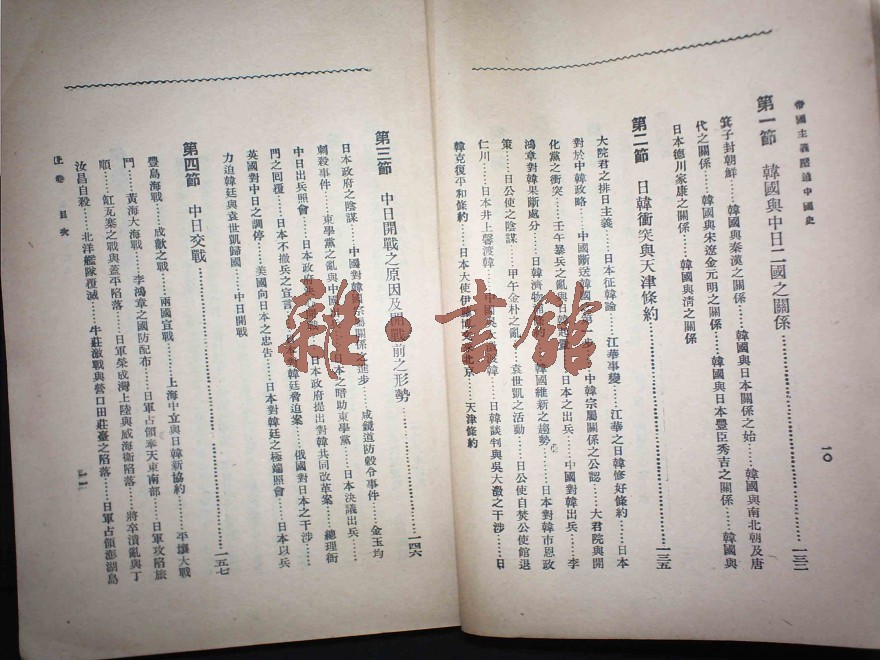 帝國主義壓迫中國史
一〇
第一節　韓國與中日二國之關係……一三二
箕子封朝鮮……韓國與秦漢之關係……韓國與日本關係之始……韓國與南北朝及唐
代之關係……韓國與宋遼金元明之關係……韓國與日本豐臣秀吉之關係……韓國與
日本德川家康之關係……韓國與清之關係
第二節　日韓衝突與天津條約……一三五
大院君之排日主義……日本征韓論……江華事變……江華之日韓修好條約……日本
對於中韓政略……中國斷送韓國之第一步……中韓宗屬關係之公認……大君院與開
化黨之衝突……壬午暴兵之亂與日韓……日本之出兵……中國對韓出兵……李
鴻章對韓果斷處分……日韓濟物浦條約……韓國維新之趨勢……日本對韓市恩政
策……日公使之陰謀……甲午金朴之亂……袁世凱之活動……日公使自焚公使館退
仁川……日本井上馨渡韓……中國吳大澂渡韓……日韓談判與吳大澂之干涉……日
韓克復平和條約……日本大使伊藤博文來北京……天津條約
第三節　中日開戰之原因及開戰前之形勢……一四六
日本政府之陰謀……中國對韓宗屬關係之進步……咸鏡道防穀令事件……金玉均
刺殺事件……東學黨之亂與中國……日本之暗助東學黨……日本決議出兵……
中日出兵照會……日本政府決……日本政府提出對韓共同改革案……總理衙
門之回覆……日本不撤兵之宣言……日本對韓廷脅迫案……俄國對日本之干涉……
英國對中日之調停……美國向日本之忠告……日本對韓廷之極端照會……日本以兵
力迫韓廷與袁世凱歸國……中日開戰
第四節　中日交戰……一五七
豐島海戰……成歡之戰……兩國宣戰……上海中立與日韓新協約……平壤大戰
……黃海大海戰……李鴻章之國防配布……日軍占領奉天東南部……日軍攻陷旅
順……缸瓦寨之戰與蓋平陷落……日軍榮成灣上陸與威海衛陷落……將卒潰亂與丁
汝昌自殺……北洋艦隊覆滅……牛莊激戰與營口田莊臺之陷落……日軍占領澎湖島
上卷　目次
一一
雜·書館